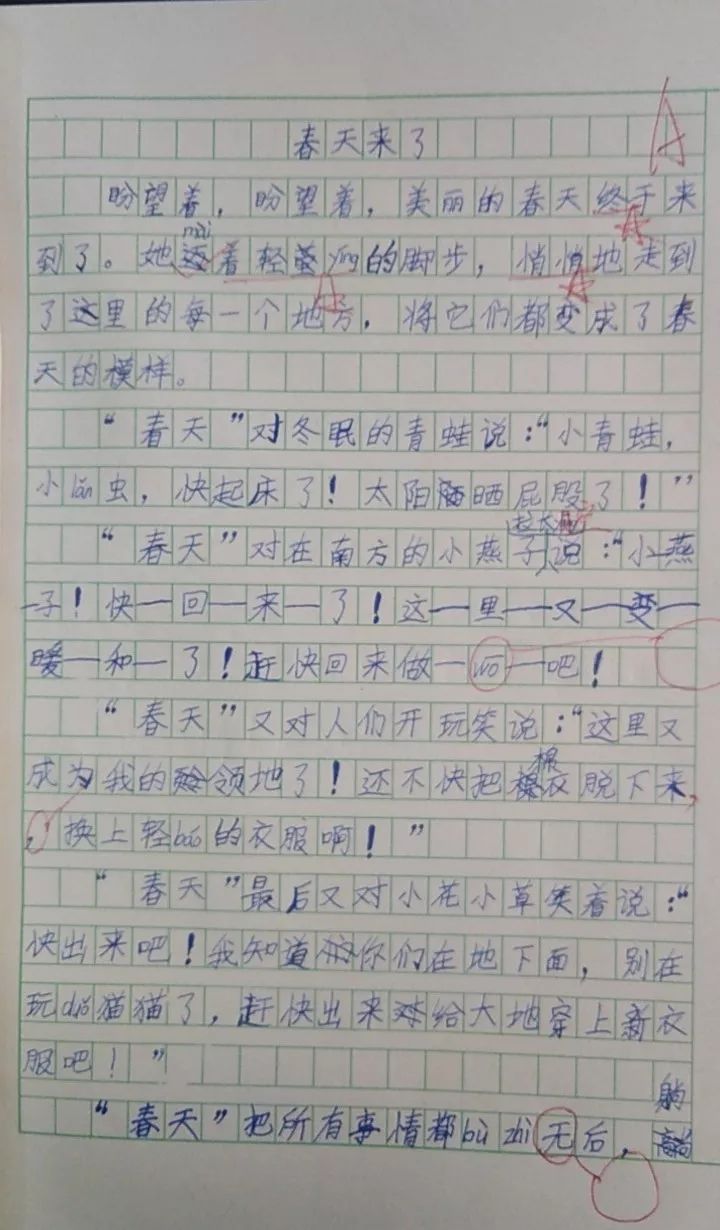 A
春天来了
盼望着，盼望着，美丽的春天终于来
到了。她迈着轻盈yíng的脚步，悄悄地走到
了这里的每一个地方，将它们都变成了春
天的模样。
“春天”对冬眠的青蛙说：“小青蛙，
小lǎn虫，快起床了！太阳晒屁股了！”
“春天”对在南方的小燕子说：“小燕
子！快回来了！这里又变
暖和了！赶快回来做wō吧！
“春天”又对人们开玩笑说：“这里又
成为我的领地了！还不快把棉衣脱下来，
，换上轻báo的衣服啊！”
“春天”最后又对小花小草笑着说：“
快出来吧！我知道你们在地下面，别在
玩duǒ猫猫了，赶快出来给大地穿上新衣
服吧！”
“春天”把所有事情都bù zhì无后，躺